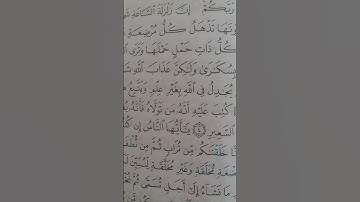 رَبَّكُمْ إِنَّ زَلْزَلَةَ ٱلسَّاعَةِ
وْنَهَا تَذْهَلُ كُلُّ مُرْضِعَةٍ
كُلُّ ذَاتِ حَمْلٍ حَمْلَهَا وَتَرَى
بِسُكَٰرَىٰ وَلَٰكِنَّ عَذَابَ ٱللَّهِ شَ
يُجَٰدِلُ فِى ٱللَّهِ بِغَيْرِ عِلْمٍ وَيَتَّبِعُ
كُتِبَ عَلَيْهِ أَنَّهُۥ مَن تَوَلَّاهُ فَأَنَّهُۥ
ٱلسَّعِيرِ ٤ يَٰٓأَيُّهَا ٱلنَّاسُ إِن كُن
خَلَقْنَٰكُم مِّن تُرَابٍ ثُمَّ مِن نُّطْفَ
ضْغَةٍ مُّخَلَّقَةٍ وَغَيْرِ مُخَلَّقَةٍ لِّنُبَيِّنَ
مَا نَشَآءُ إِلَىٰٓ أَجَلٍ مُّسَمًّى ثُمَّ